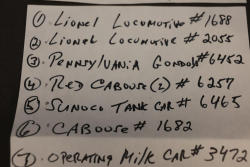 ① Lionel Locomotive #1688
② Lionel Locomotive #2055
③ Pennsylvania Gondola #6452
④ Red Caboose (2) #6257
⑤ Sunoco Tank Car #6465
⑥ Caboose #1682
⑦ Operating Milk Car #3472